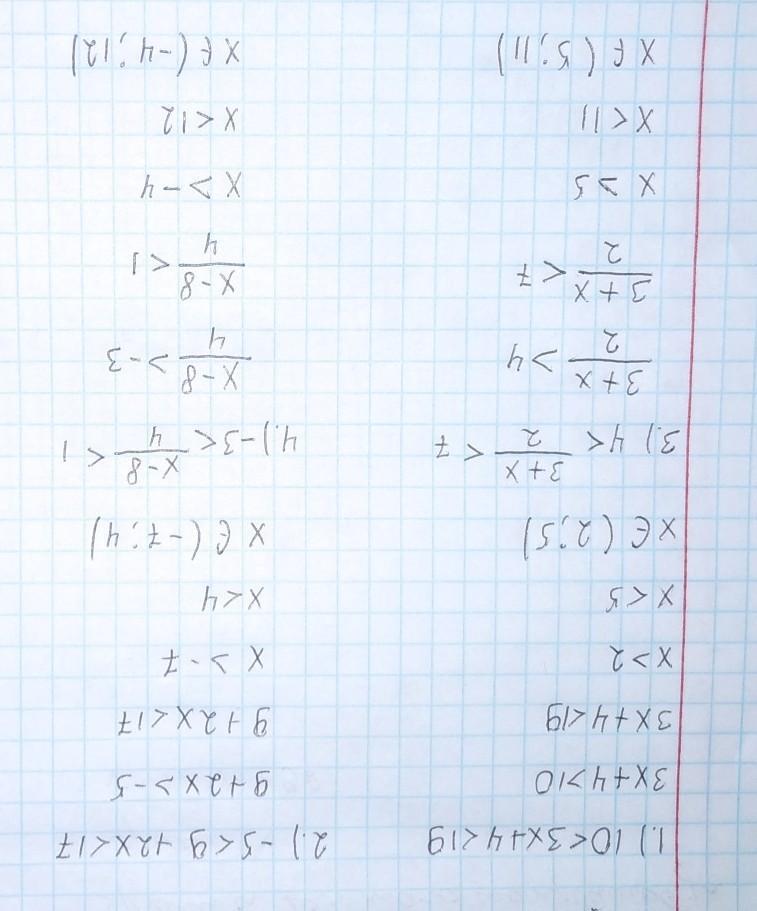 1.) 10<3x+4<19
3x+4>10
3x+4<19
x>2
x<5
x ∈ (2;5)
2.) -5<9+2x<17
9+2x>-5
9+2x<17
x>-7
x<4
x ∈ (-7;4)
3.) 4< (3+x)/2 <7
(3+x)/2 >4
(3+x)/2 <7
x>5
x<11
x ∈ (5;11)
4.) -3< (x-8)/4 <1
(x-8)/4 >-3
(x-8)/4 <1
x>-4
x<12
x ∈ (-4;12)